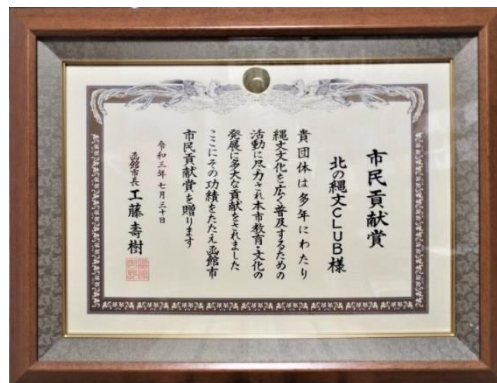 市民貢献賞
北の縄文CLUB様
貴団体は多年にわたり
縄文文化を広く普及するための
活動に尽力され本市教育・文化の
発展に多大な貢献をされました
ここにその功績をたたえ函館市
市民貢献賞を贈ります
令和三年七月三十日
函館市長 工藤壽樹